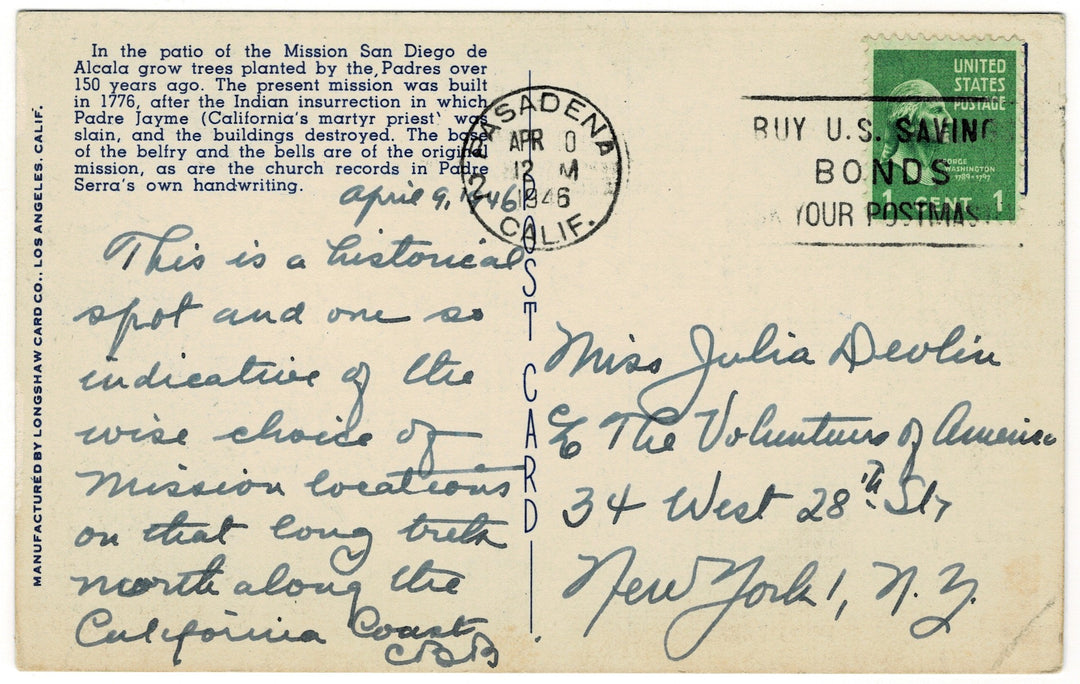 In the patio of the Mission San Diego de
Alcala grow trees planted by the Padres over
150 years ago. The present mission was built
in 1776, after the Indian insurrection in which
Padre Jayme (California's martyr priest) was
slain, and the buildings destroyed. The base
of the belfry and the bells are of the original
mission, as are the church records in Padre
Serra's own handwriting.
April 9, 1946
This is a historical
spot and one so
indicative of the
wise choice of
Mission locations
on that long trek
north along the
California Coast
CBB
MANUFACTURED BY LONGSHAW CARD CO., LOS ANGELES, CALIF.
POST CARD
PASADENA
2
APR 0
12 M
1946
CALIF.
BUY U.S. SAVING
BONDS
YOUR POSTMAS
UNITED
STATES
POSTAGE
GEORGE
WASHINGTON
1789-1797
1 CENT 1
Miss Julia Devlin
c/o The Volunteers of America
34 West 28th St,
New York 1, N.Y.